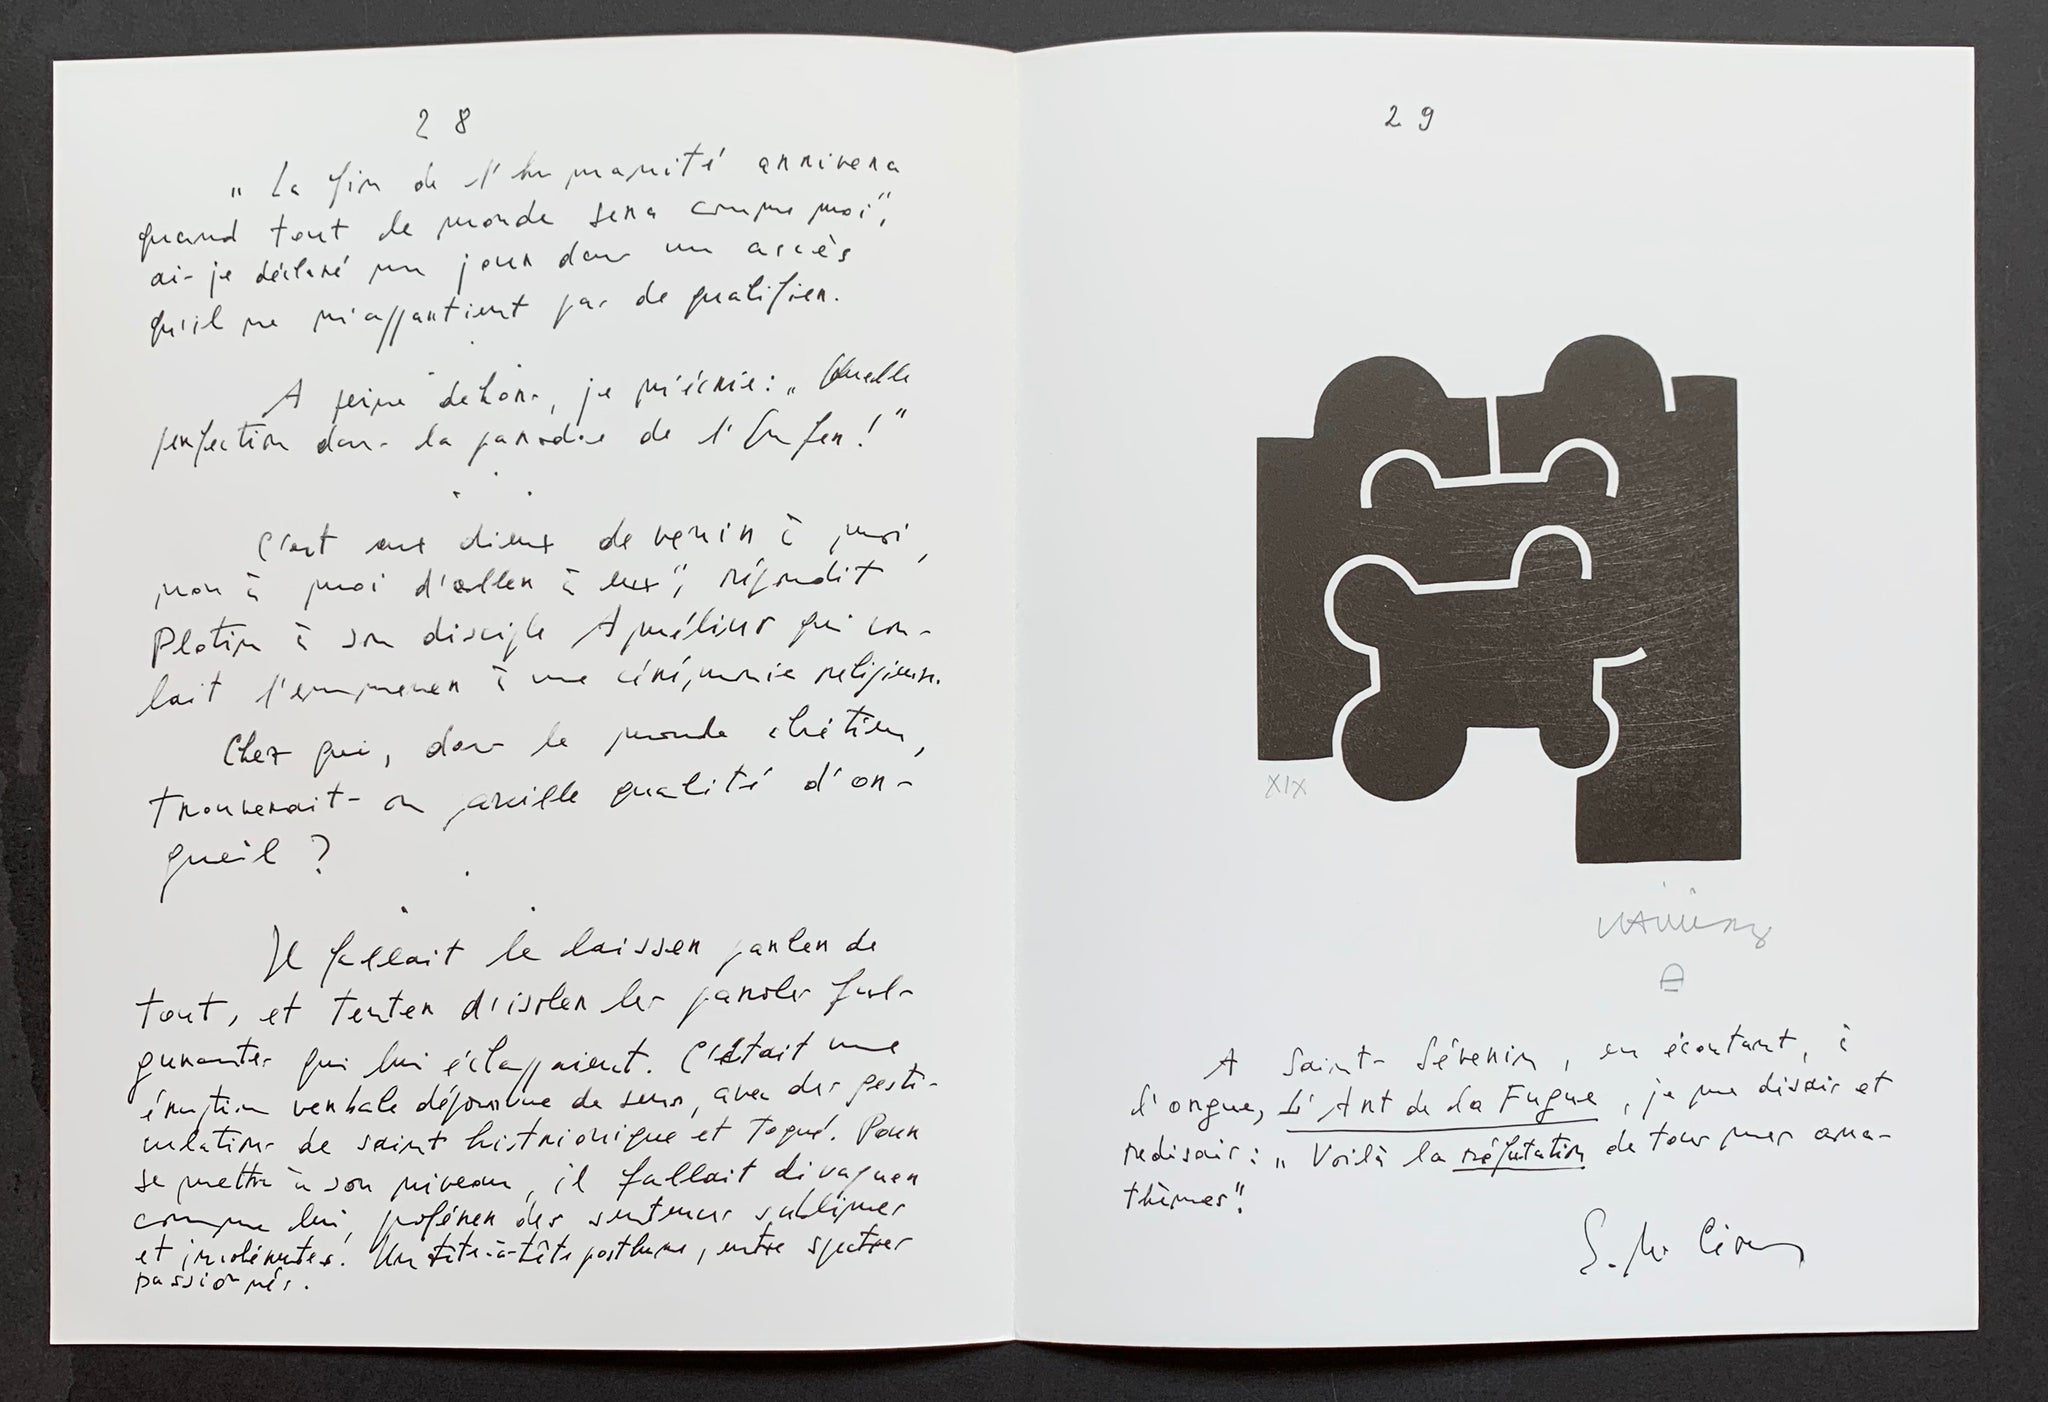 28
„ La fin de l'humanité arrivera
quand tout le monde sera comme moi",
ai-je déclaré un jour dans un accès
qu'il ne m'appartient pas de qualifier.
A peine dehors, je m'écrie : „ Quelle
perfection dans la parodie de l'Enfer ! "
C'est aux dieux de venir à moi,
non à moi d'aller à eux", répondit
Plotin à son disciple Amélius qui vou-
lait l'emmener à une cérémonie religieuse.
Chez qui, dans le monde chrétien,
trouverait-on pareille qualité d'or-
gueil ?
Il fallait le laisser parler de
tout, et tenter d'isoler les paroles ful-
gurantes qui lui échappaient. C'était une
éruption verbale dépourvue de sens, avec des gesti-
culations de saint histrionique et toqué. Pour
se mettre à son niveau, il fallait divaguer
comme lui, proférer des sentences sublimes
et incohérentes. Un tête-à-tête posthume, entre spectres
passionnés.
29
XIX
A Saint-Séverin, en écoutant, à
l'orgue, L'Art de la Fugue, je me disais et
redisais : „ Voilà la réfutation de tous mes ana-
thèmes".
E. M. Cioran